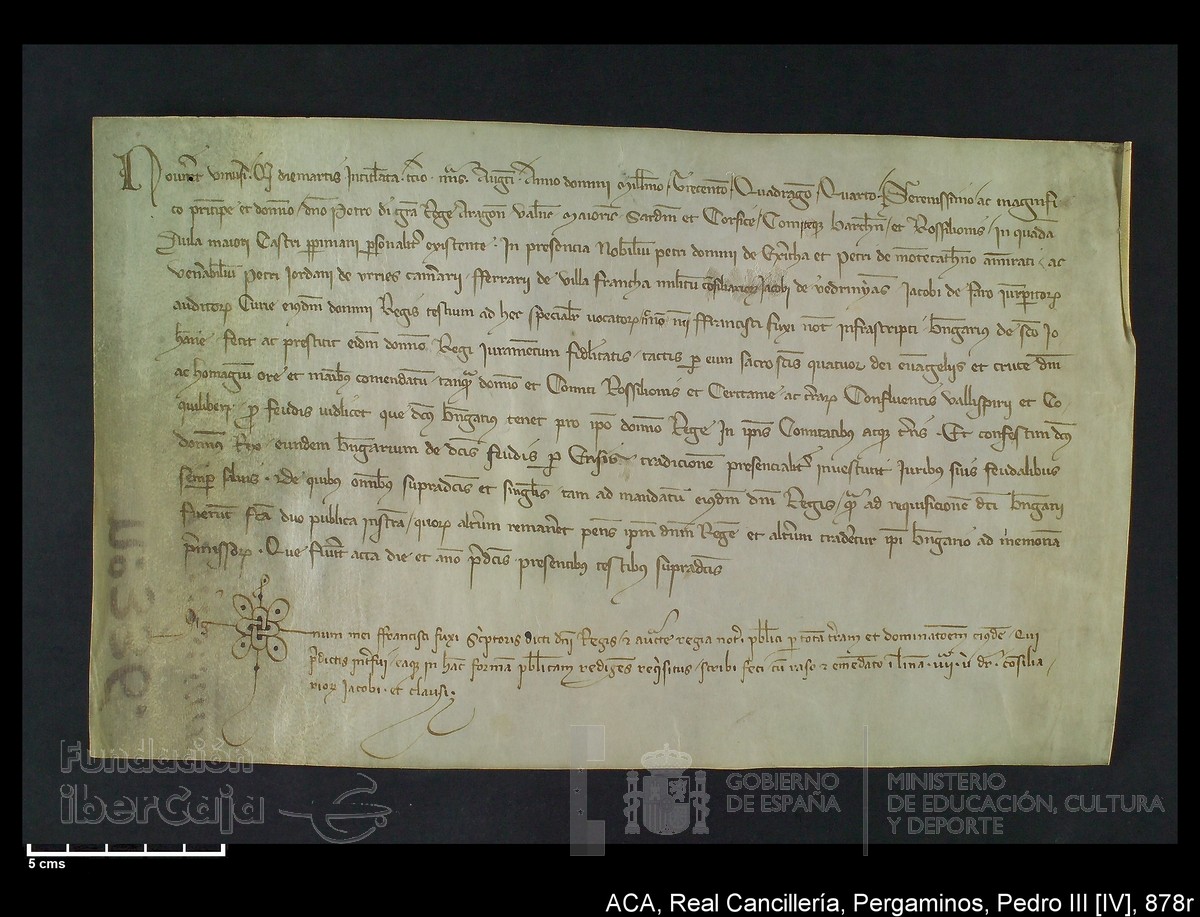 Noverit universi. Qd die martis intitulata. tercio. nonas. Augusti. Anno domini Millesimo, Trecentesimo, Quadragesimo, Quarto. Serenissimo ac magnifi
co principe et domino, dno Petro di gra Rege Aragon Valencie Maioric Sardin et Corsice, Comiteque Barchn, et Rossilionis, in quadam
Aula maiori Castri perpiniani personaliter existente. In presencia Nobilium petri domini de Exericha et Petri de montecatheno amirati, ac
venerabilium Petri Jordani de urries camerarii, fferrarii de villa francha militum consiliariorum Jacobi de vedrinyans, Jacobi de faro iurisperitorum
auditorum Curie eiusdem domini Regis testium ad hec specialiter vocatorum, mei ffrancisci fuxi not infrascripti, bngarius de sco Jo
hanne, fecit ac prestitit eidem domino Regi iuramentum fidelitatis, tactis per eum sacrosctis quatuor dei evangeliis et cruce dni
ac homagium ore et manibus comendatum, tanquam domino et Comiti Rossilionis et Ceritanie, ac terrarum Confluentis vallispirii et Co
quiliberi, pro feudis videlicet que dcus bngarius tenet pro ipo domino Rege in ipis Comitatibus atque terris. Et confestim dcus
dominus Rex, eundem bngarium de dictis feudis per Ensis tradicionem presencialiter investivit iuribus suis feudalibus
semper salvis. De quibus omnibus supradictis et singulis, tam ad mandatum eiusdem dni Regis, quam ad requisicionem dci bngarii
fuerunt fca duo publica instrumenta, quorum alterum remaneret penes ipm dnum Regem et alterum traderetur ipi bngario ad memoria
premissorum. Que fuerunt acta die et anno predictis presentibus testibus supradictis
Sig
num mei ffrancisci fuxi Scriptoris dicti dni Regis, et auctoritate regia noti publici per totam terram et dominationem eiusdem, Qui
predictis interfui, eaque in hac formam publicam redigens requisitus, scribi feci cum raso et emendato in linea. IIIIa. ubi dr. consilia
riorum Jacobi. et clausi.
Nº 336.
Fundación
iberCaja
GOBIERNO
DE ESPAÑA
MINISTERIO
DE EDUCACIÓN, CULTURA
Y DEPORTE
5 cms
ACA, Real Cancillería, Pergaminos, Pedro III [IV], 878r